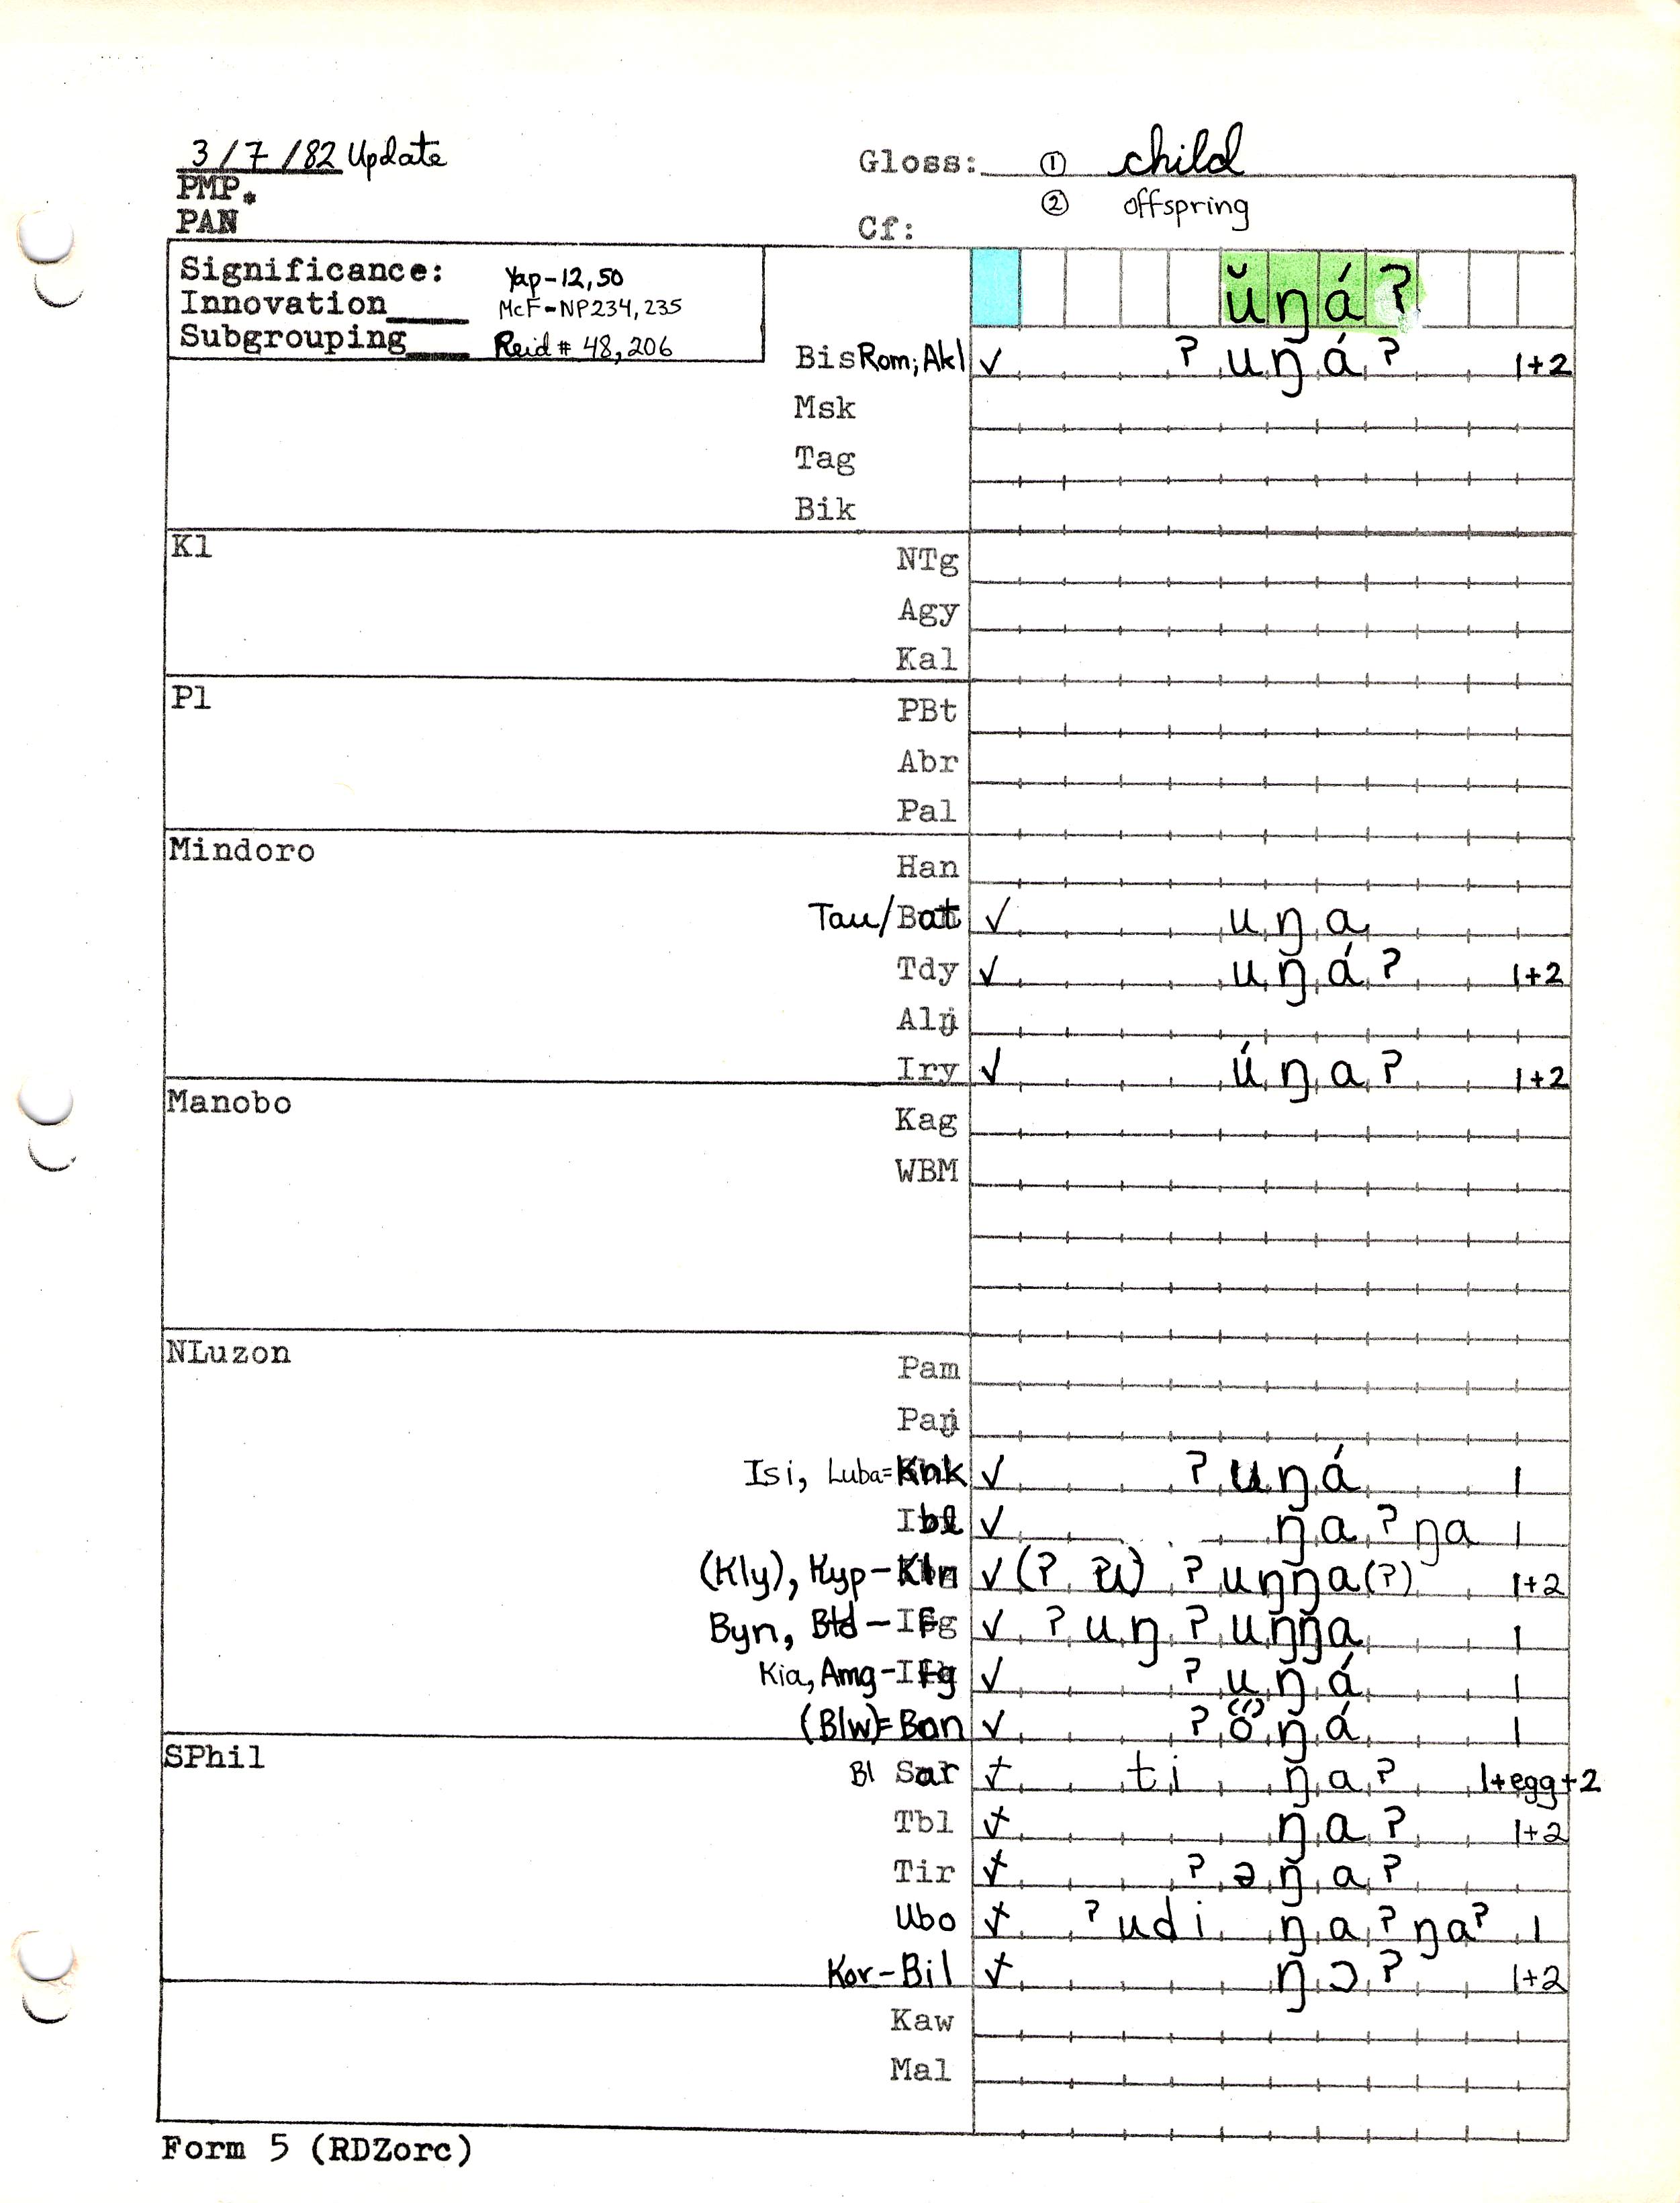 3/7/82 Update
Gloss: ① child
PMP*
② offspring
PAN
Cf:
Significance: Yap-12,50
Innovation____ McF-NP234,235
Subgrouping____ Reid # 48,206
ŭŋáʔ
Bis Rom; Akl ✓ ʔuŋáʔ 1+2
Msk
Tag
Bik
Kl
NTg
Agy
Kal
Pl
PBt
Abr
Pal
Mindoro
Han
Tau/Bat ✓ uŋa
Tdy ✓ uŋáʔ 1+2
Alŋ
Iry ✓ úŋaʔ 1+2
Manobo
Kag
WBM
NLuzon
Pam
Paŋ
Isi, Luba=Knk ✓ ʔuŋá 1
Ibl ✓ ŋaʔŋa 1
(Kly), Kyp-Kln ✓ (ʔu) ʔuŋŋa(ʔ) 1+2
Byn, Btd-Ifg ✓ ʔuŋʔuŋŋa 1
Kia, Amg-Ifg ✓ ʔuŋá 1
(Blw)=Bon ✓ ʔo(´)ŋá 1
SPhil
Bl Sar ✓ ti ŋaʔ 1+egg+2
Tbl ✓ ŋaʔ 1+2
Tir ✓ ʔəŋaʔ
Ubo ✓ ʔudi ŋaʔŋaʔ 1
Kor-Bil ✓ ŋɔʔ 1+2
Kaw
Mal
Form 5 (RDZorc)